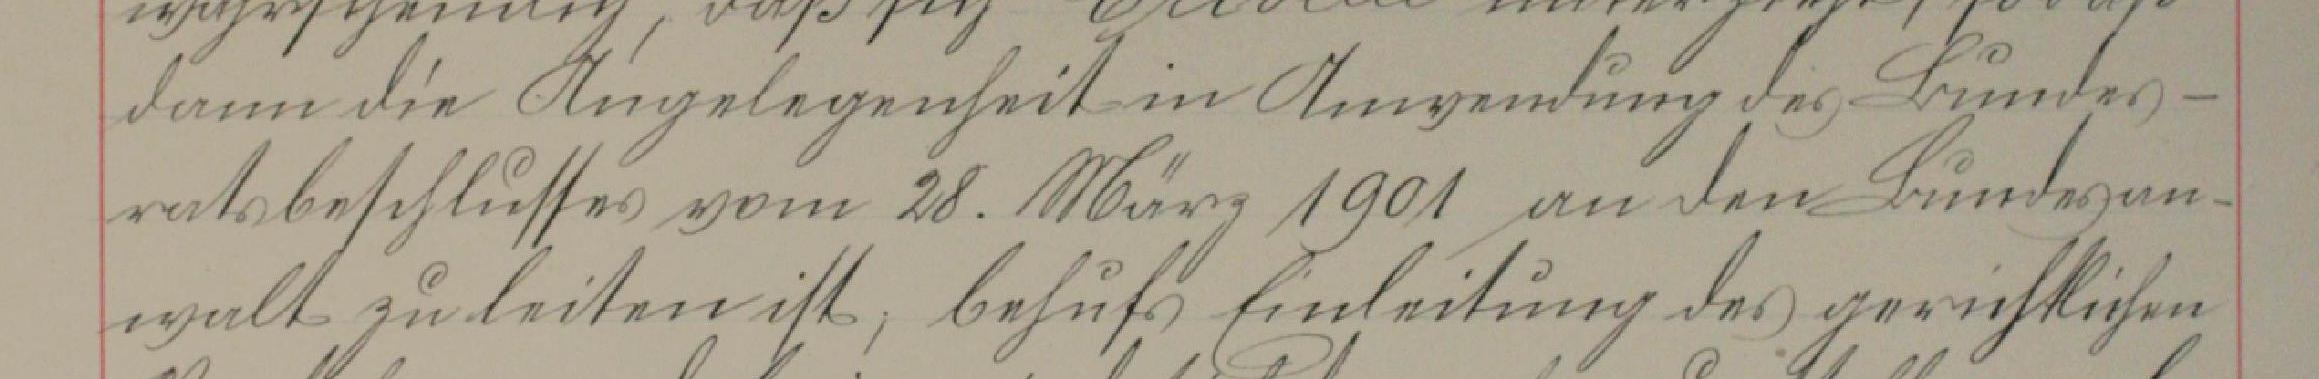 wahrscheinlich, daß sich unterzieht, sodaß
dann die Angelegenheit in Anwendung des Bundes-
ratsbeschlusses vom 28. März 1901 an den Bundesan-
walt zu leiten ist, behufs Einleitung des gerichtlichen